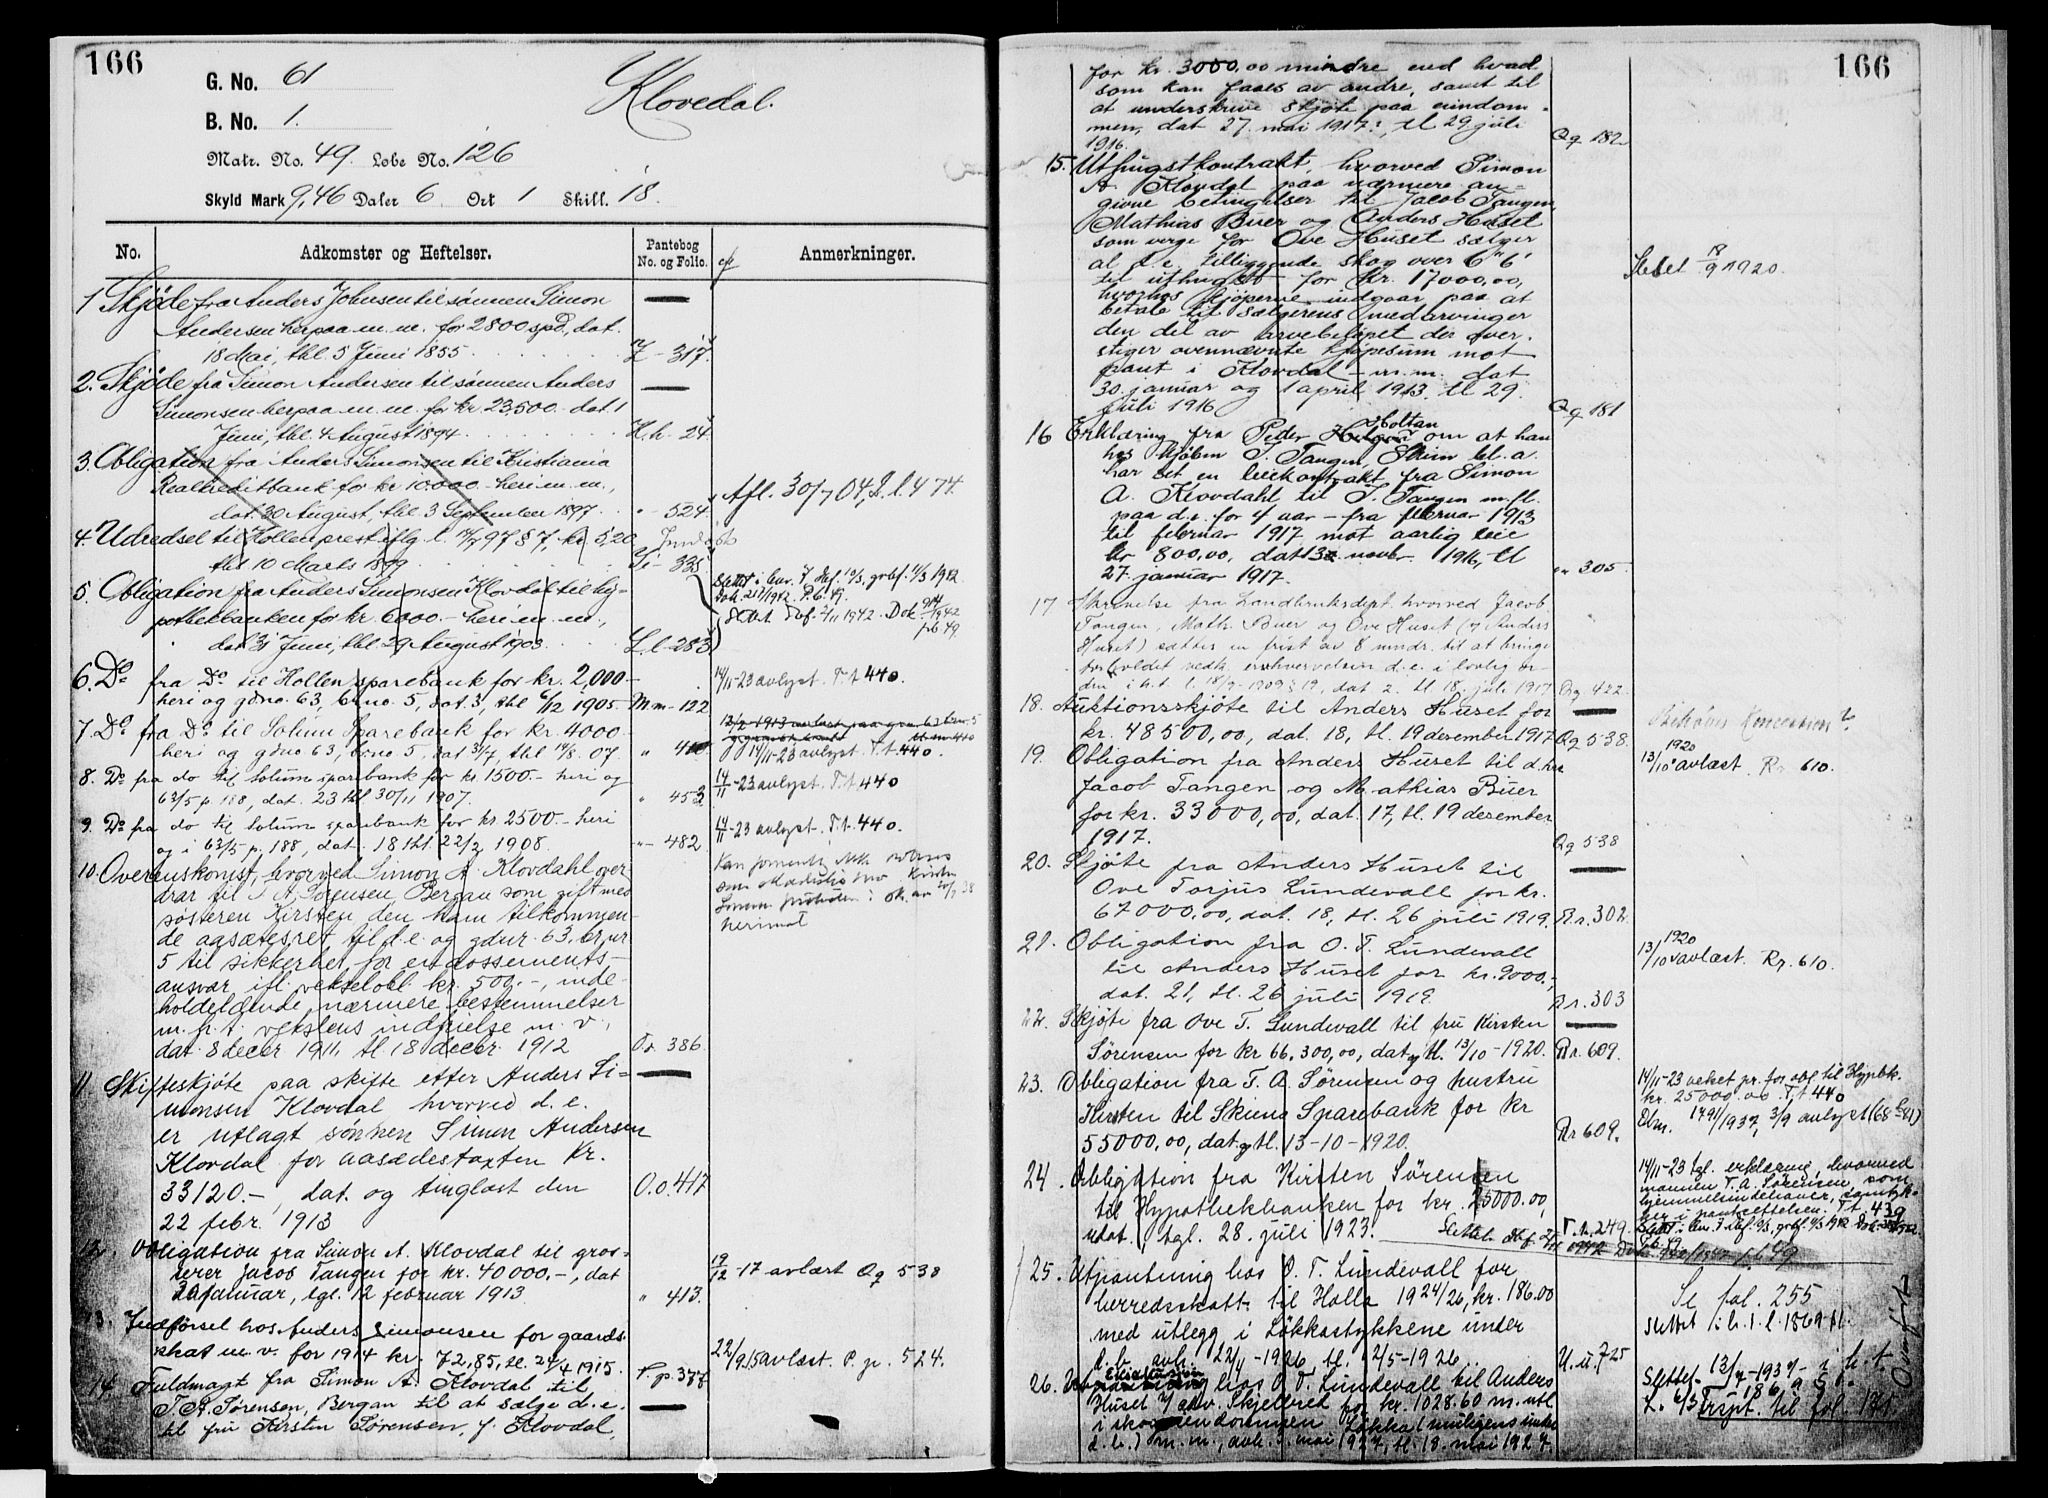 166
G. No. 61
B. No. 1.
Klovedal.
Matr. No. 49. Løbe No. 126
Skyld Mark 9,46 Daler 6 Ort 1 Skill. 18.
No. Adkomster og Heftelser. Pantebog No. og Folio. Anmerkninger.
1 Skjøde fra Anders Johnsen til sønnen Simon
Andersen herpaa m. m. for 2800 spd, dat.
18 Mai, thl 5 Juni 1855 317
2. Skjøde fra Simon Andersen til sønnen Anders
Simonsen herpaa m. m. for kr 23,500 - dat 1
Juni, thl. 4 August 1894. H.h - 24
3. Obligation fra Anders Simonsen til Kristiania
Realkreditbank for kr 10.000 - heri m. m.,
dat. 30 August, thl 3 September 1897 " - 524
Afl. 30/7 04, L.l. 474.
4. Udredsel til Hollen prest iflg l. 14/7 97 § 7, kr 5,20
thl 10 Marts 1899 335
5 Obligation fra Anders Simonsen Klovdal til hy-
pothekbanken for kr. 6000. - heri m. m.,
dat 31 Juni, thl. 29 August 1903. L.l - 283
6. Do fra Do til Hollen sparebank for kr. 2,000 -
heri og gdno. 63, brno. 5, dat 3, thl 6/12 1905. M.m - 122
14/11-23 avlyst. T.t 440.
7. Do fra Do til Solum Sparebank for kr. 4000 -
heri og gdno 63, brno. 5, dat 31/7, thl 14/8. 07. " 410
14/11-23 avlyst. T.t. 440.
8. Do fra do til Solum sparebank for kr. 1500.- heri og
63/5 p. 188, dat. 23 thl 30/11 1907. " 453
14/11-23 avlyst. T.t 440
9. Do fra do til Solum sparebank for kr 2500.- heri
og i 63/5 p. 188, dat. 18 thl. 22/2 1908. "- 482
14/11-23 avlyst. T.t. 440.
10. Overenskomst, hvorved Simon A. Klovdahl over-
drar til T. A. Sørensen Bergan som gift med
søsteren Kirsten den ham tilkommen-
de aasætesret til d. e. og gdnr. 63, br. nr.
5 til sikkerhet for endossements-
ansvar ifl. vekselobl kr. 500.-, inde-
holdelende nærmere bestemmelser
m. h. t. vekslens indfrielse m. v.,
dat. 8 decbr 1911, tl 18 decbr. 1912 O.o. 386
11. Skifteskjøte paa skifte etter Anders Si-
monsen Klovdal hvorved d. e.
er utlagt sønnen Simon Andersen
Klovdal for aasædestaxten kr.
33120.-, dat. og tinglæst den
22 febr. 1913 O.o. 417
12. Obligation fra Simon A. Klovdal til gros-
serer Jacob Tangen for kr. 40000.-, dat
januar, tgl. 12 februar 1913. " 413.
19/12-17 avlæst Qq 538
13. Indførsel hos Anders Simonsen for gaards-
skat m. v. for 1914 kr. 72,85, tl. 24/4 1915. P.p. 377
22/9.15 avlæst. P. p. 524.
14 Fuldmagt fra Simon A. Klovdal til
T. A. Sørensen, Bergan til at sælge d. e.
til fru Kirsten Sørensen, f. Klovdal,
166
for kr. 3000,00 mindre end hvad
som kan faaes av andre, samt til
at underskrive skjøte paa eindom-
men, dat 27. mai 1917., tl 29 juli
1916. Qq 182
15. Uthugstkontrakt, hvorved Simon
A. Klovdal paa nærmere an-
givne betingelser til Jacob Tangen,
Mathias Buer og Anders Huset
som verge for Ove Huset sælger
al d. e. tilliggende skog over 6" 6'
til uthugst for Kr. 17000,00,
hvorhos kjøperne indgaar paa at
betale til sælgerens medarvinger
den del av arvebeløpet der over-
stiger ovennævnte kjøpesum mot
pant i Klovdal m. m. dat
30. januar og 1 april 1913 tl 29.
juli 1916 Qq 181
Slettet 18/9 1920.
16 Erklæring fra Peder Holtan om at han
hos kjøbm. J. Tangen, Skien bl. a.
har set en leiekontrakt fra Simon
A. Klovdahl til J. Tangen m. fl.
paa d. e. for 4 aar - fra februar 1913
til februar 1917 mot aarlig leie
kr 800,00, dat novbr 1916, tl
27. januar 1917. " 305.
17. Skrivelse fra Landbruksdept. hvorved Jacob
Tangen, Math. Buer og Ove Huset (v/ Anders
Huset) sættes en frist av 8 mndr. til at bringe
forholdet vedk. erhvervelsen d. e. i lovlig or-
den i h. t. l. 18/9-1909 § 19, dat. 2. tl. 18. juli 1917 Qq 422
18. Auktionsskjøte til Anders Huset for
kr. 48500,00, dat. 18, tl. 19 desember 1917 Qq 538.
19. Obligation fra Anders Huset til d. hrr
Jacob Tangen og Mathias Buer
for kr. 33000,00, dat. 17, tl. 19 desember
1917. Qq 538
1920
13/10 avlæst R.r. 610.
20. Skjøte fra Anders Huset til
Ove Torjus Lundevall for kr.
67000,00, dat. 18, tl. 26 juli 1919. R.r. 302.
21. Obligation fra O. T. Lundevall
til Anders Huset for kr. 9000.-,
dat. 21, tl. 26 juli 1919. R.r. 303
1920
13/10 avlæst. R.r. 610.
22. Skjøte fra Ove T. Lundevall til fru Kirsten
Sørensen for kr 66.300,00, dat og tl. 13/10-1920. R.r. 609.
23. Obligation fra T. A. Sørensen og hustru
Kirsten til Skiens Sparebank for kr
55000,00, dat og tl. 13-10-1920. R.r 609.
14/11-23 veket pr. for obl. til Hypbk.
kr. 25000.00 T.t 440
Dbn. 1491/1937, 3/9 avlyst
24. Obligation fra Kirsten Sørensen
til Hypothekbanken for kr. 25000.00,
udat., tgl. 28. juli 1923. T.t. 249.
14/11-23 tgl. erklæring, hvorved
mannen T. A. Sørensen, som
hjemmelsindehaver, samtyk-
ker i pantsettelsen. T.t. 439
25. Utpantning hos O. T. Lundevall for
herredsskatt til Holla 1924/26, kr. 186.00
med utlegg i Løkkastykkene under
d. b. avh. 22/4-1926, tl. 12/5-1926. U.u. 725
Se fol. 255
slettet i h. t. l. 1869 §1.
26. Eksekusjon hos O. T. Lundevall til Anders
Huset v/ adv. Skjelbred for kr. 1028.60 m. utl.
i skogeiendommen Løkka (muligens under
d. b.) m. m., avh. 5. mai 1927, tl. 18. mai 1927
Slettet 13/7-1937 i h. t.
Trspt. til fol. 181.